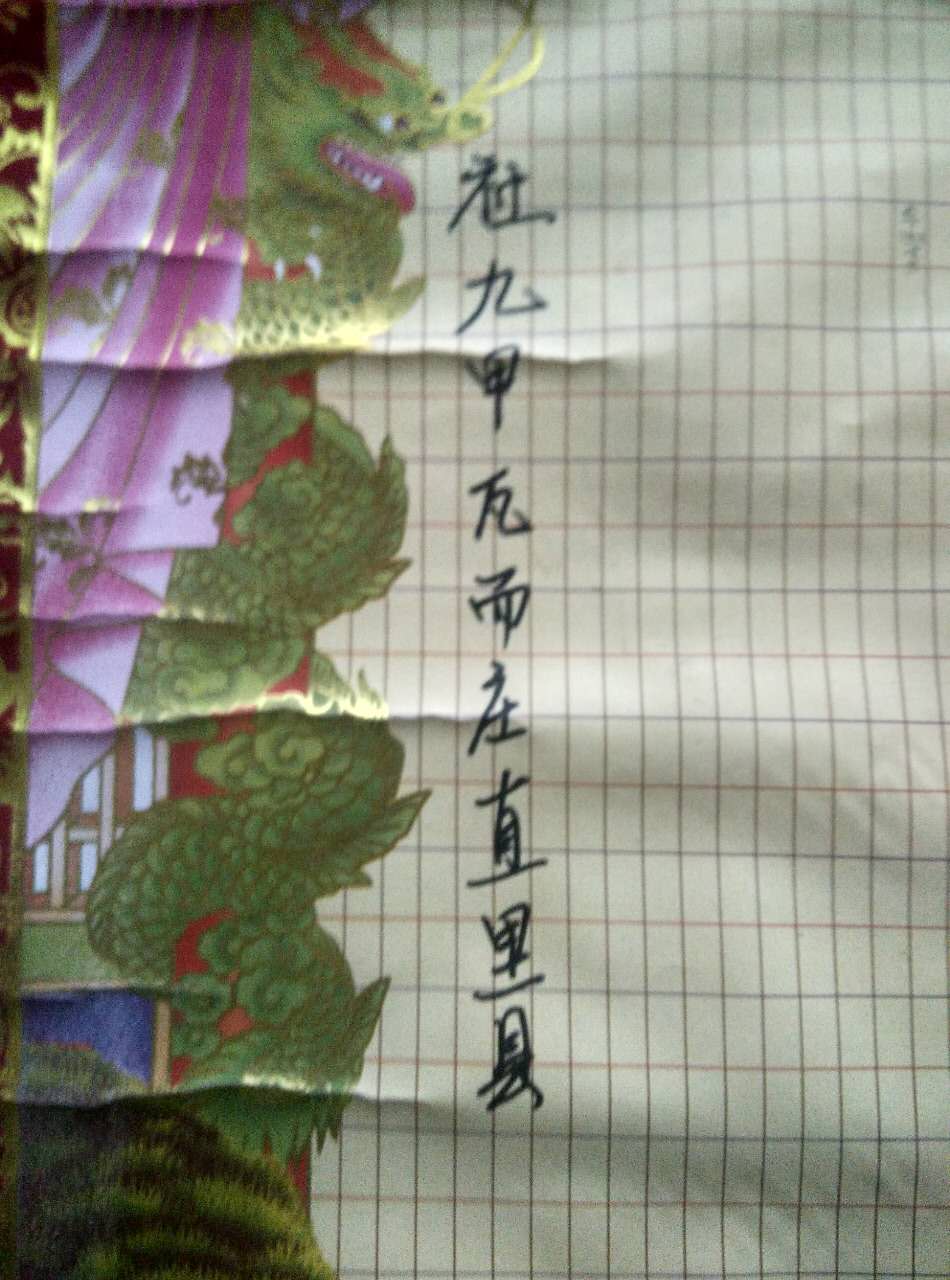 社九甲瓦而庄直里县